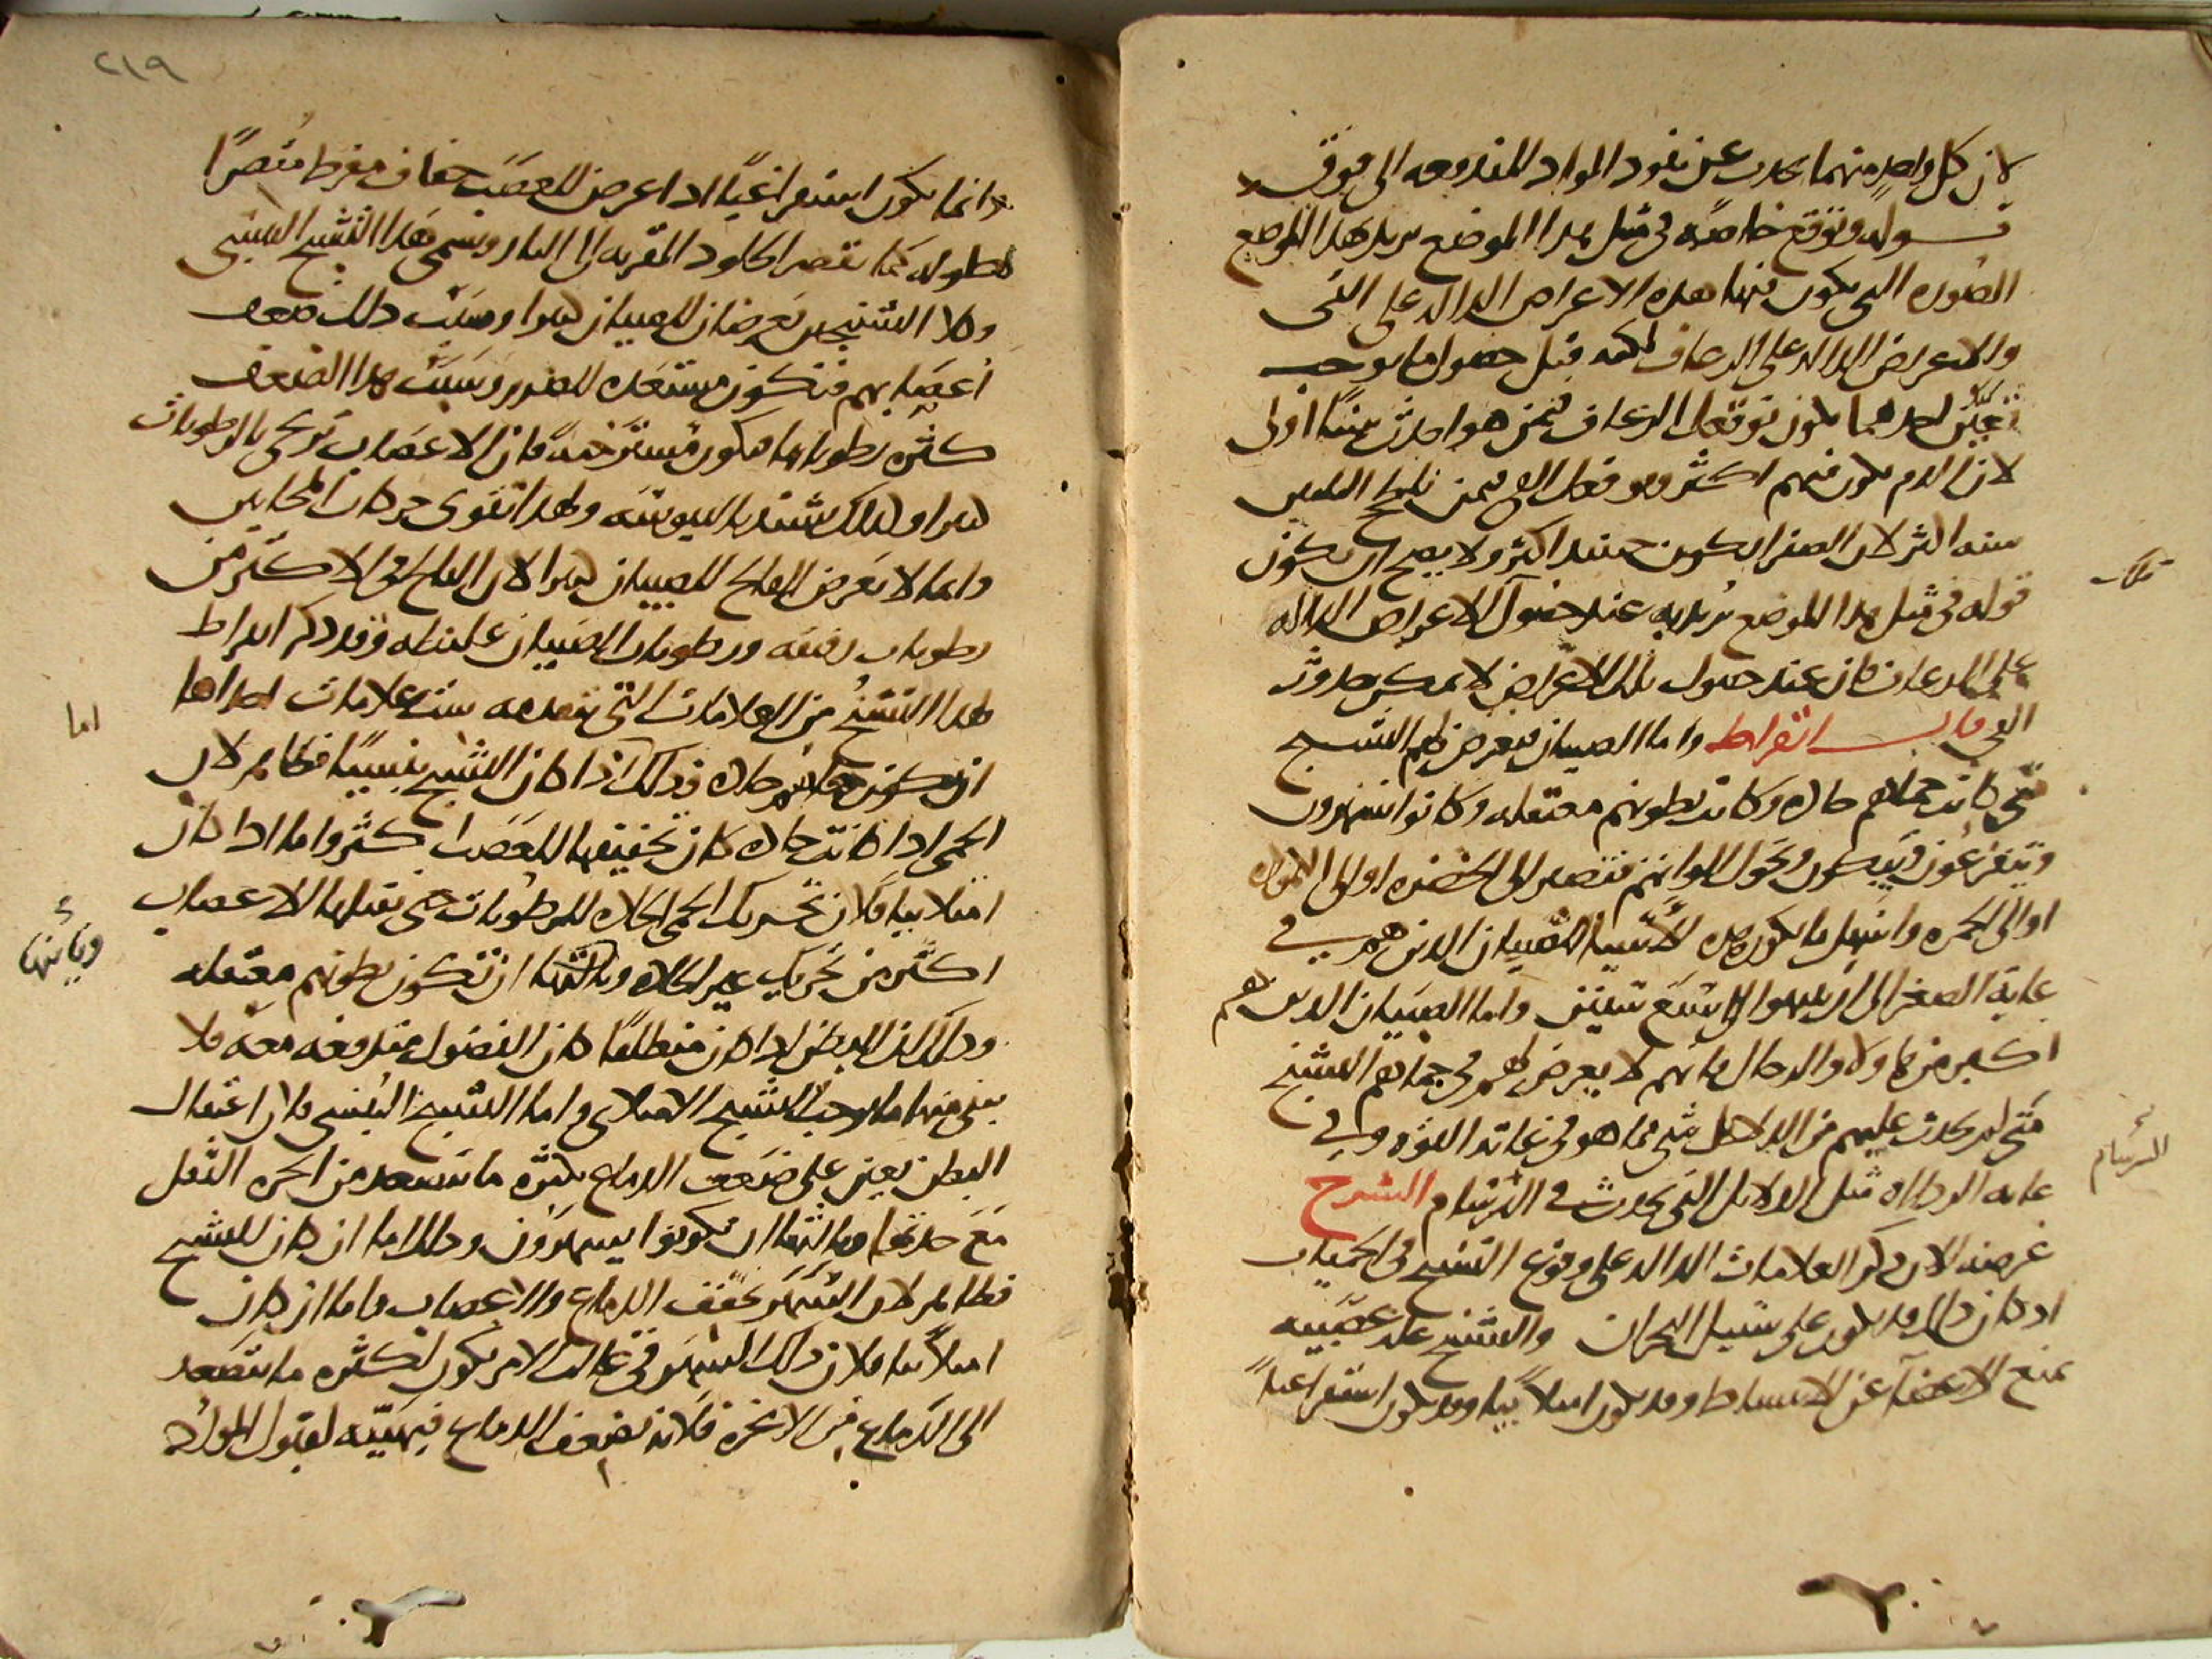 لان كل واحد منهما يحدث عن نفود المواد المندفعه الى فوق
قوله وتوقع خاصه فى مثل هدا الموضع يريد بهدا الموضع
الصوره التى يكون فيها هده الاعراض الداله على القى
والاعراض الداله على الرعاف لكنه قبل حصول ما يوجب
تعين احدهما يكون توقعك الرعاف فيمن هو احدث سنا اولى
لان الدم يكون فيهم اكثر وتوقعك القى فيمن ناطح الثلثين
سنه اكثر لان الصفرا يكون حينيد اكثر ولا يصح ان يكون
قوله فى مثل هدا الموضع يريد به عند حصول الاعراض الداله
على الرعاف فان عند حصول تلك الاعراض لا يمكن حدوث
القى قال ابقراط واما الصبيان فيعرض لهم التشنج
متى كانت حماهم حاده وكانت بطونهم معتقله وكانوا يسهرون
ويتفزعون ويبكون وتحول الوانهم فتصير الى الخضره او الى الكموده
او الى الحمره واسهل ما يكون هده الاشيا للصبيان الدين هم في
غاية الصغر الى ان يبلغوا الى سبع سنين واما الصبيان الدين هم
اكبر من هاولا والرجال فانهم لا يعرض لهم فى حماهم التشنج
متى لم يحدث عليهم من الدلايل شى مما هو فى غاية القوه وفي
غايه الرداه مثل الدلايل التى تحدث في البرسام الشرح
غرضه الان دكر العلامات الداله على وقوع التشنج فى الحميات
اد كان دلك قد يكون على سبيل البحران والتشنج عله عصبيه
تمنع الاعضآ عن الانبساط وقد يكون امتلاييا وقد يكون استفراغيا
السرسام
٢١٩
وانما يكون استفراغيا ادا عرض للعصب جفاف مفرط مقصرا
لطوله كما تقصر الجلود المقربه الى النار ويسمى هدا التشنج اليبسى
وكلا التشنجين يعرضان للصبيان كثيرا وسبب دلك ضعف
اعصابهم فتكون مستعده للضرر وسبب هدا الضعف
كثره رطوباتها فتكون مسترخيه فان الاعصاب ترتخى بالرطوبات
كثيرا ولدلك تشتد باليبوسه ولهدا تقوى حركات المجانين
وانما لا يعرض الفالج للصبيان كثيرا لان الفالج فى الاكثر من
رطوبات رقيقه ورطوبات الصبيان غليظه وقد دكر ابقراط
لهدا التشنج من العلامات التى تتقدمه ست علامات احداها
ان تكون حماهم حاده ودلك ادا كان التشنج يبسيا فظاهر لان
الحمى ادا كانت حاده كان تجفيفها للعصب اكثر واما ادا كان
امتلاييا فلان تحريك الحمى الحاده للرطوبات حتى تقبلها الاعصاب
اكثر من تحريك غير الحاده وثالثها ان تكون بطونهم معتقله
ودلك لان البطن ادا كان منطلقا كان الفضول مندفعه معه فلا
يبقى منها ما يوجب التشنج الامتلاى واما التشنج اليبسى فلان اعتقال
البطن يعين على ضعف الدماغ بكثره ما يتصعد من ابخره الثفل
مع حدتها وثالثها ان يكونوا يسهرون ودلك اما ان كان للتشنج
فظاهر لان السهر يجفف الدماغ والاعصاب واما ان كان
امتلاييا فلان دلك السهر فى غالب الامر يكون لكثره ما يتصعد
الى الدماغ من الابخره فلانه يضعف الدماغ فيهييه لقبول المواد
اما
وثانيها